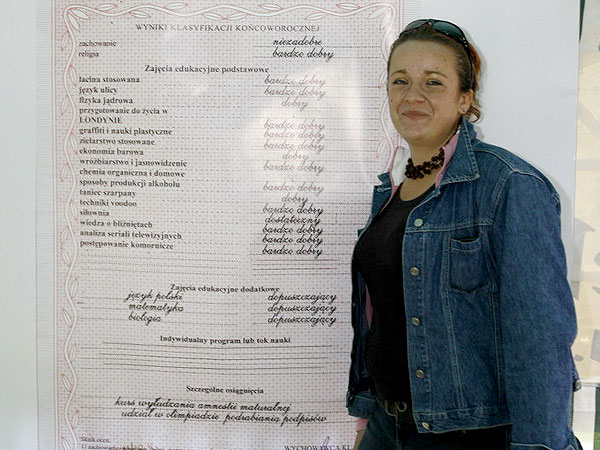 WYNIKI KLASYFIKACJI KOŃCOWOROCZNEJ
zachowanie niezadobre
religia bardzo dobry
Zajęcia edukacyjne podstawowe
łacina stosowana bardzo dobry
język ulicy bardzo dobry
fizyka jądrowa dobry
przygotowanie do życia w
LONDYNIE bardzo dobry
graffiti i nauki plastyczne bardzo dobry
zielarstwo stosowane bardzo dobry
ekonomia barowa dobry
wróżbiarstwo i jasnowidzenie bardzo dobry
chemia organiczna i domowe
sposoby produkcji alkoholu bardzo dobry
taniec szarpany dobry
techniki voodoo bardzo dobry
siłownia dostateczny
wiedza o bliźniętach bardzo dobry
analiza seriali telewizyjnych bardzo dobry
postępowanie komornicze bardzo dobry
Zajęcia edukacyjne dodatkowe
język polski dopuszczający
matematyka dopuszczający
biologia dopuszczający
Indywidualny program lub tok nauki
Szczególne osiągnięcia
kurs wyłudzania amnestii maturalnej
udział w olimpiadzie podrabiania podpisów
Skala ocen:
WYCHOWAWCA